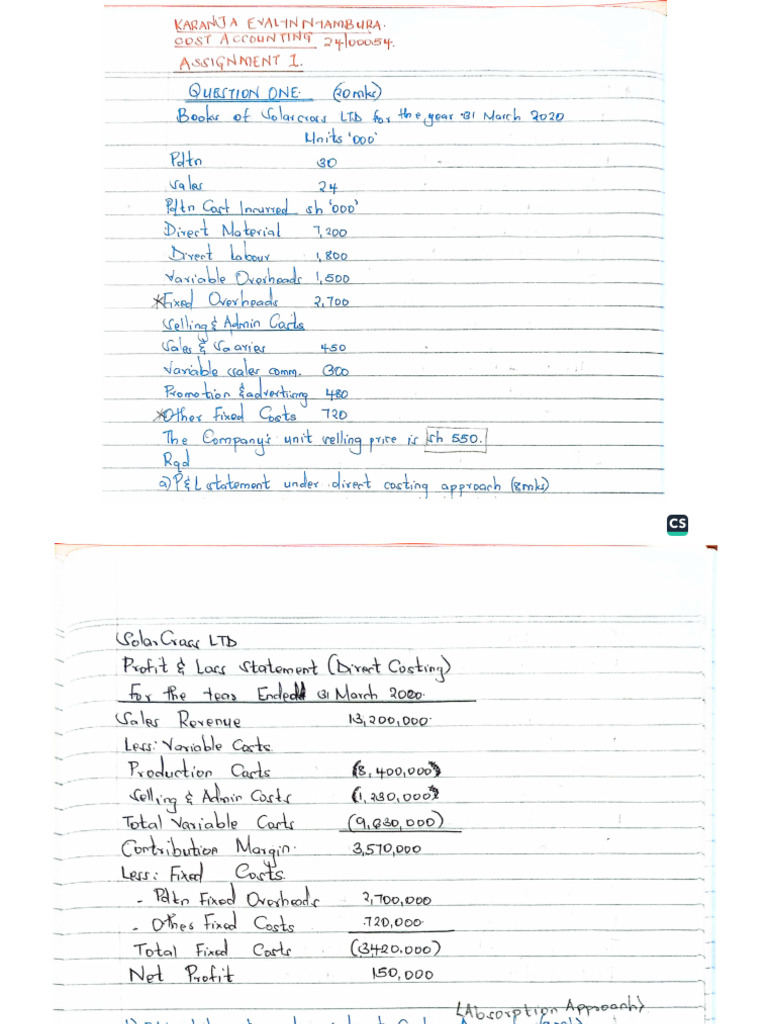 KARANJA EVALINNJAMBURA.
COST ACCOUNTING 24/00054.
ASSIGNMENT 1.
QUESTION ONE. (20mks)
Books of Solarcross LTD for the year 31 March 2020
Units '000'
Pdtn 30
Sales 24
Pdtn Cost Incurred sh '000'
Direct Material 7,200
Direct Labour 1,800
Variable Overheads 1,500
*Fixed Overheads 2,700
Selling & Admin Costs
Sales & Salaries 450
Variable sales comm. 300
Promotion & advertising 480
*Other Fixed Costs 720
The Company's unit selling price is sh 550.
Rqd
a) P&L statement under direct costing approach (8mks)
CS
SolarCross LTD
Profit & Loss Statement (Direct Costing)
For the Years Ended 31 March 2020.
Sales Revenue 13,200,000.
Less: Variable Costs
Production Costs (8,400,000)
Selling & Admin Costs (1,230,000)
Total Variable Costs (9,630,000)
Contribution Margin. 3,570,000
Less: Fixed Costs.
- Pdtn Fixed Overheads 2,700,000
- Other Fixed Costs 720,000.
Total Fixed Costs (3420.000)
Net Profit 150,000
(Absorption Approach)